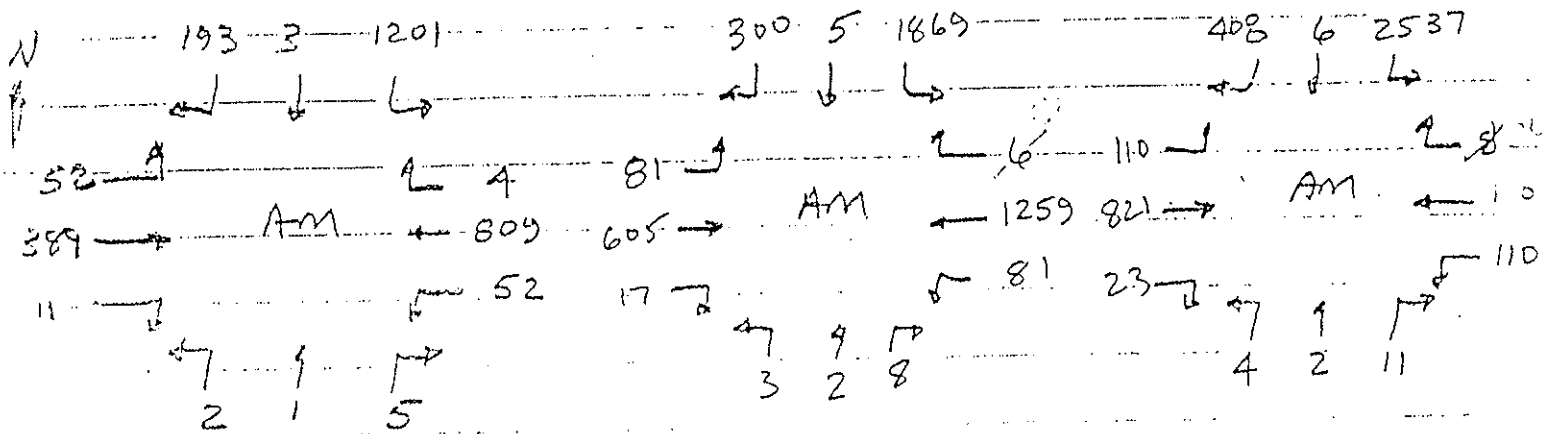 N 193 3 1201 300 5 1869 408 6 2537
52 4 81 6 110 8
389 AM 809 605 AM 1259 821 AM
11 52 17 81 23 110
2 1 5 3 2 8 4 2 11